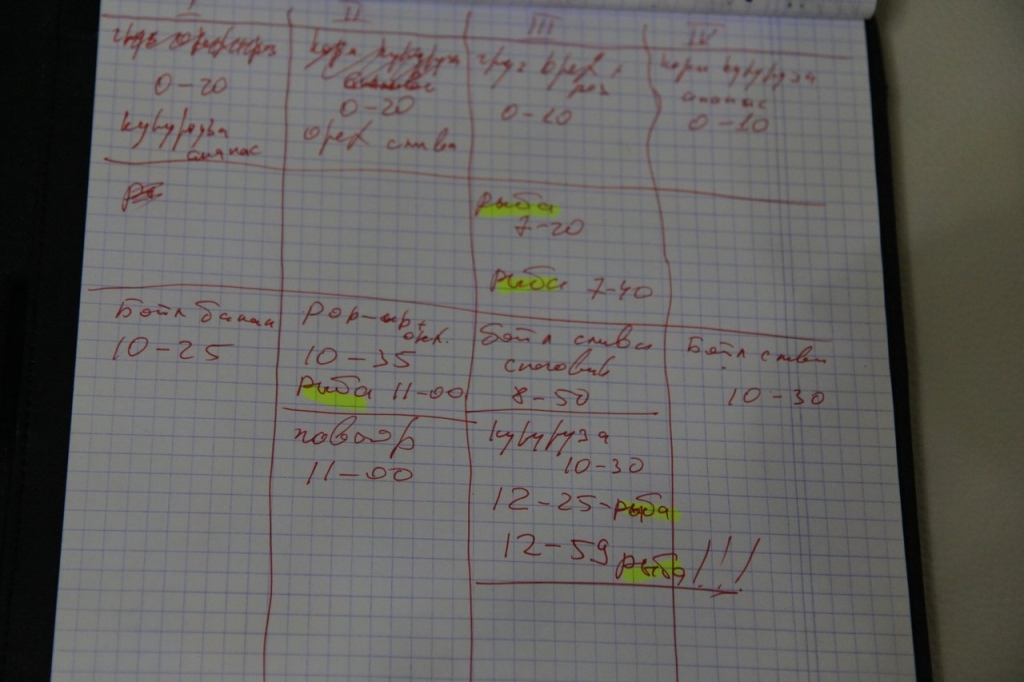 I II III IV
0-20
кукуруза
ананас
кукуруза
0-20
орех слива
груз орех
0-20
корм кукуруза
ананас
0-20
рыба
7-20
рыба 7-40
Бойл банан
10-25
Pop-up +
10-35
рыба 11-00
Бойл слива
8-50
Бойл слива
10-30
повтор
11-00
кукуруза
10-30
12-25-рыба
12-59 рыба!!!